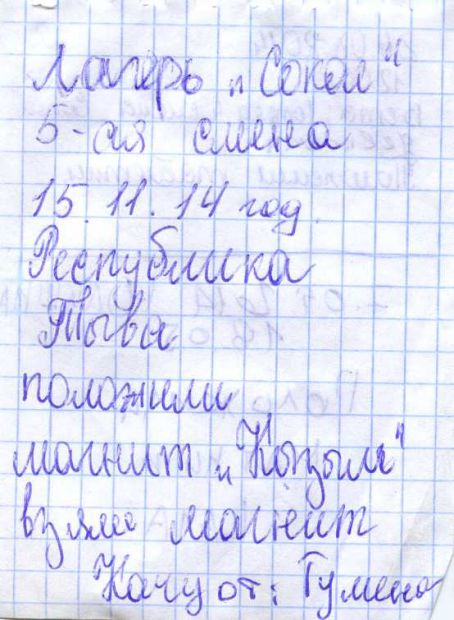 Лагерь "Сокол"
5-ая смена
15.11.14 год
Республика
Тыва
положили
магнит "Кызыл"
взяли магнит